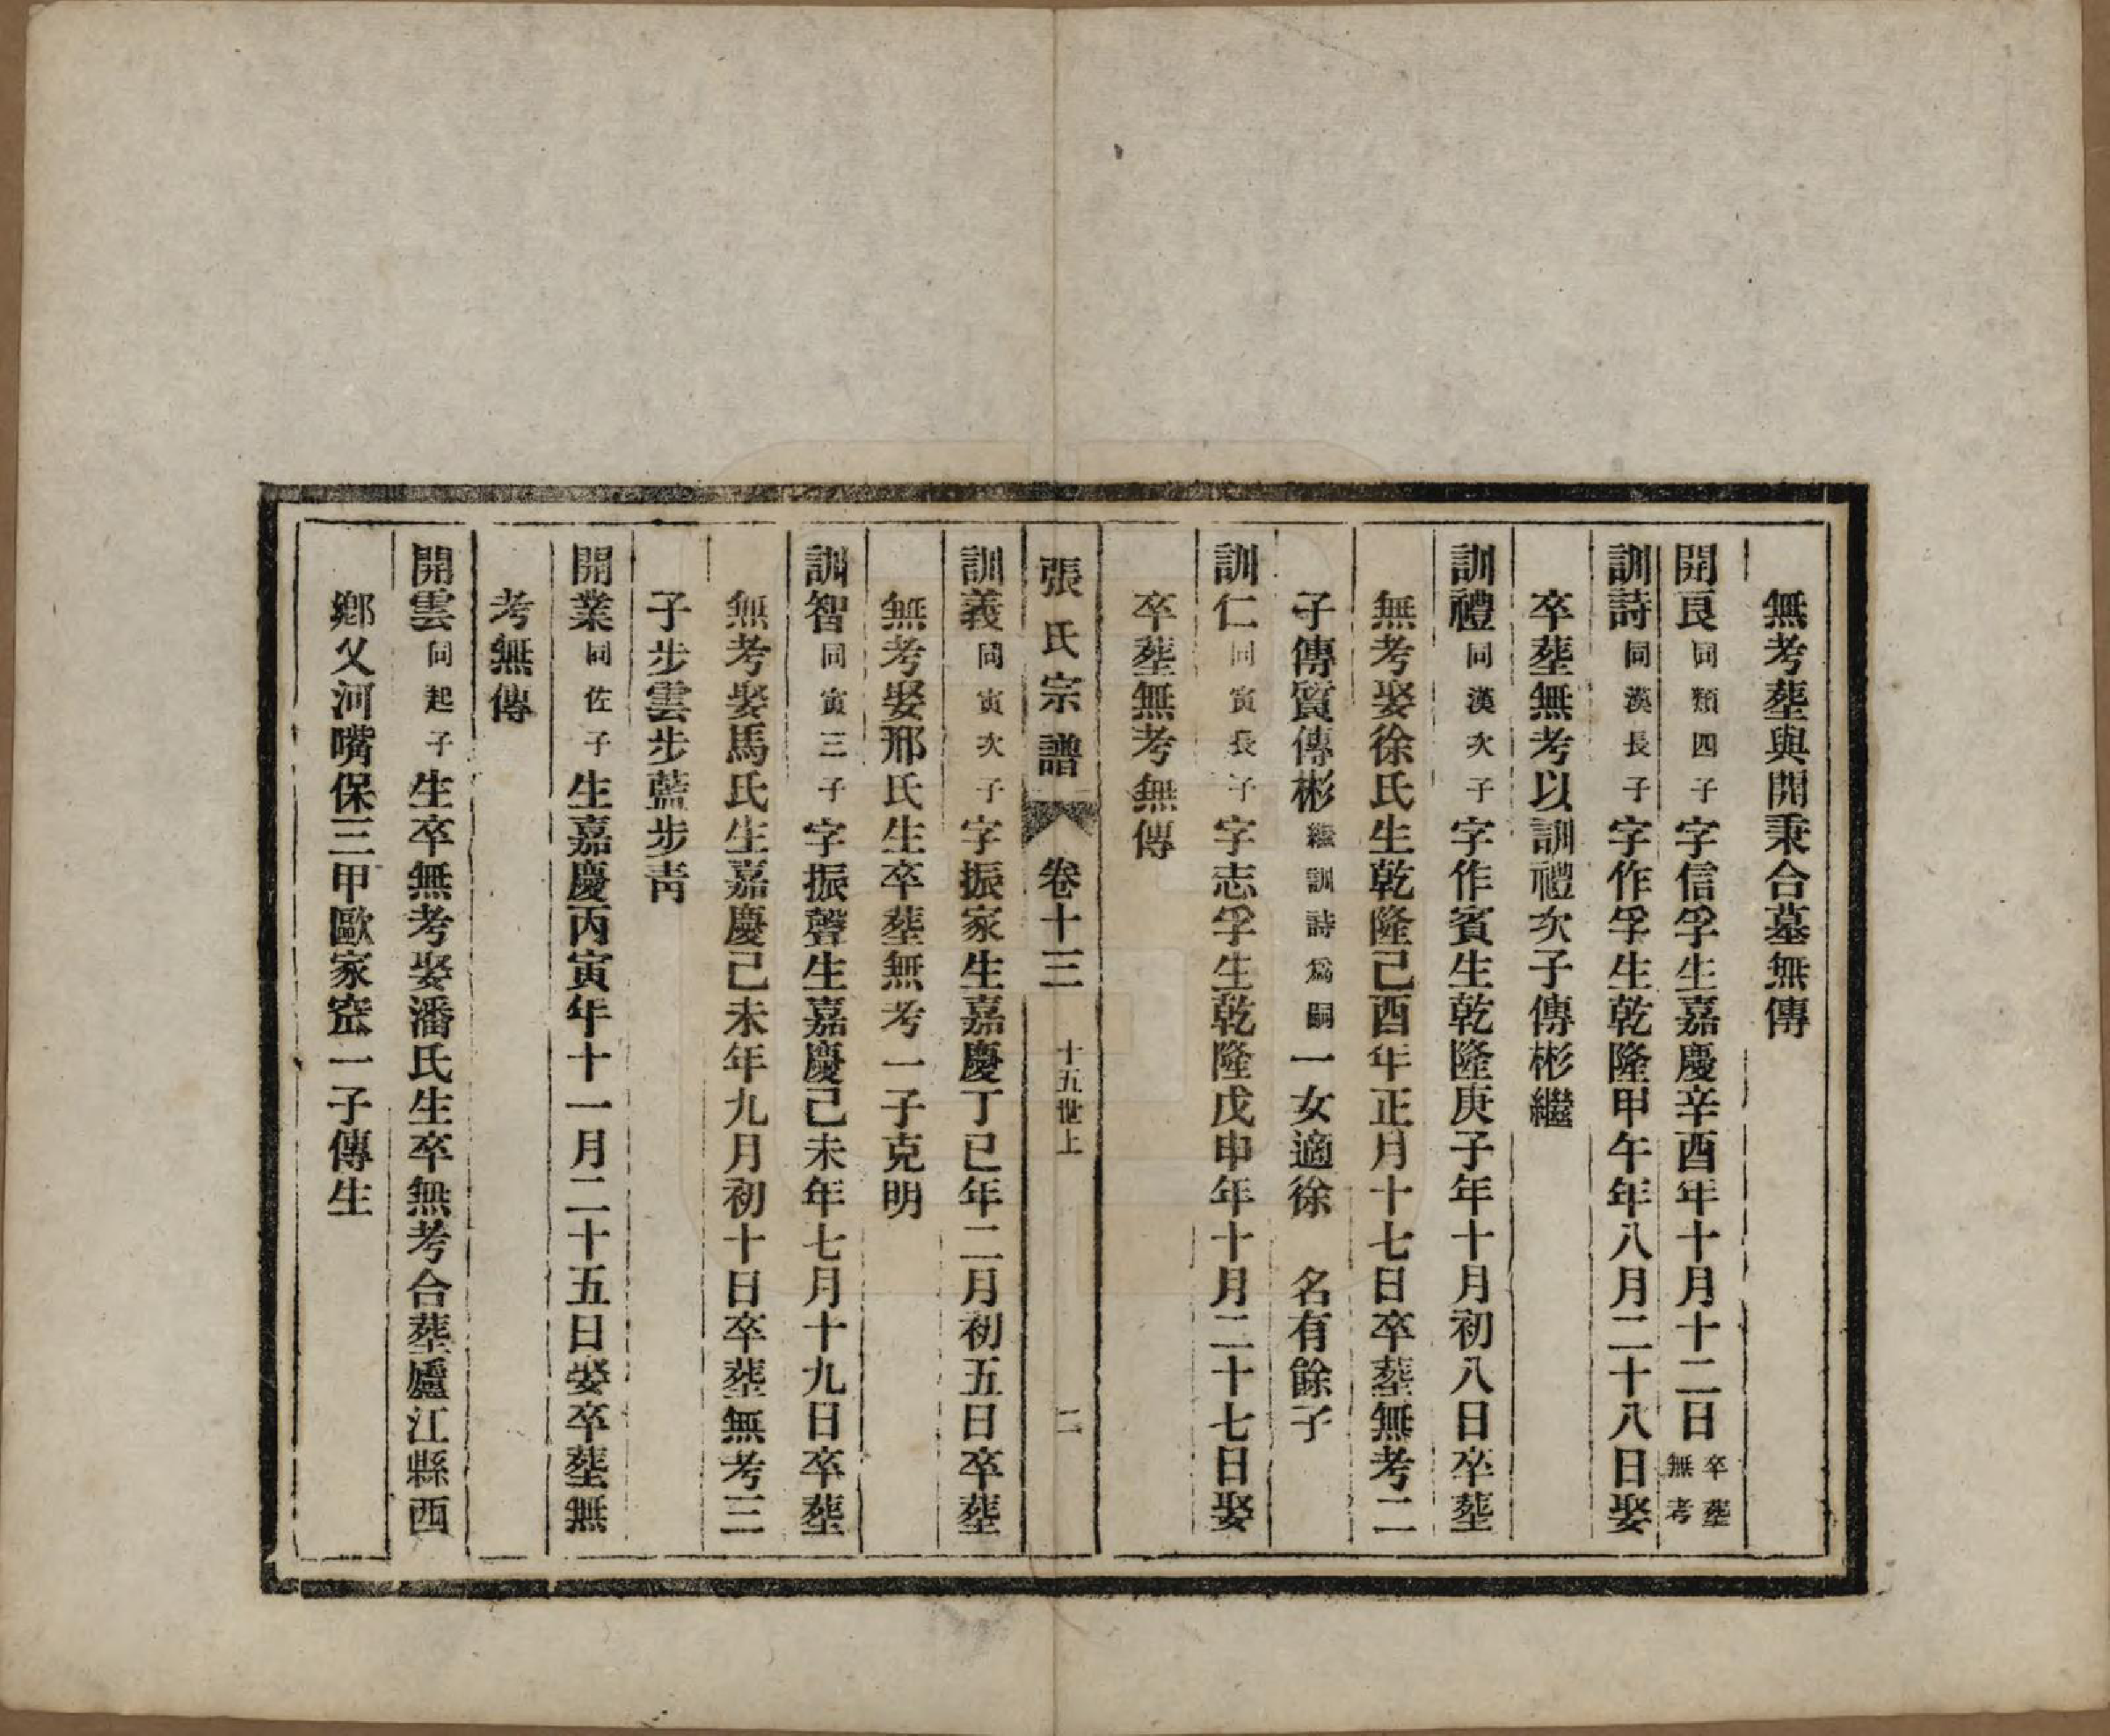 無考塟與開秉合墓無傳
開良同類四子字信孚生嘉慶辛酉年十月十二日卒塟無考
訓詩同漢長子字作孚生乾隆甲午年八月二十八日娶
卒塟無考以訓禮次子傳彬繼
訓禮同漢次子字作賓生乾隆庚子年十月初八日卒塟
無考娶徐氏生乾隆己酉年正月十七日卒塟無考二
子傳質傳彬繼訓詩爲嗣一女適徐　名有餘子
訓仁同寅長子字志孚生乾隆戊申年十月二十七日娶
卒塟無考無傳
張氏宗譜　卷十三　十五世上　二
訓義同寅次子字振家生嘉慶丁巳年二月初五日卒塟
無考娶邢氏生卒塟無考一子克明
訓智同寅三子字振聲生嘉慶己未年七月十九日卒塟
無考娶馬氏生嘉慶己未年九月初十日卒塟無考三
子步雲步藍步青
開業同佐子生嘉慶丙寅年十一月二十五日娶卒塟無
考無傳
開雲同起子生卒無考娶潘氏生卒無考合塟廬江縣西
鄉父河嘴保三甲歐家窊一子傳生